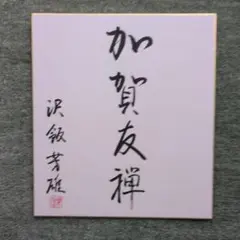 加賀友禅
沢飯芳雄